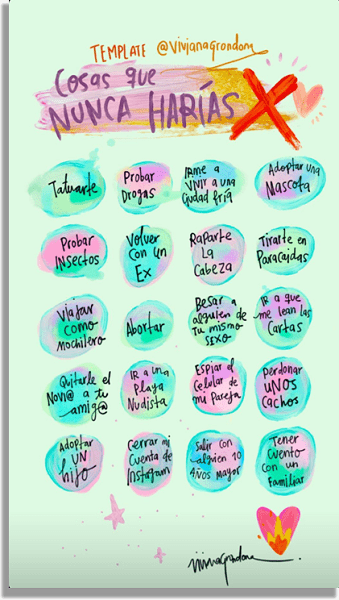 TEMPLATE @vivianagrondona
Cosas que
NUNCA HARÍAS X
Tatuarte
Probar
Drogas
IRme a
VIVIR a una
Ciudad fría
Adoptar una
Mascota
Probar
INsectos
Volver
con un
Ex
Raparte
La
Cabeza
Tirarte en
Paracaidas
Viajar
como
Mochilero
Abortar
Besar a
alguien de
Tu mismo
sexo
IR a que
me lean las
Cartas
Quitarle el
Novi@ a tu
amig@
IR a una
Playa
Nudista
Espiar el
Celular de
mi Pareja
Perdonar
UNOS
Cachos
Adoptar
UN
hijo
Cerrar mi
Cuenta de
Instagram
Salir con
alguien 10
AÑOS Mayor
Tener
Cuento
con un
Familiar
vivianagrondona